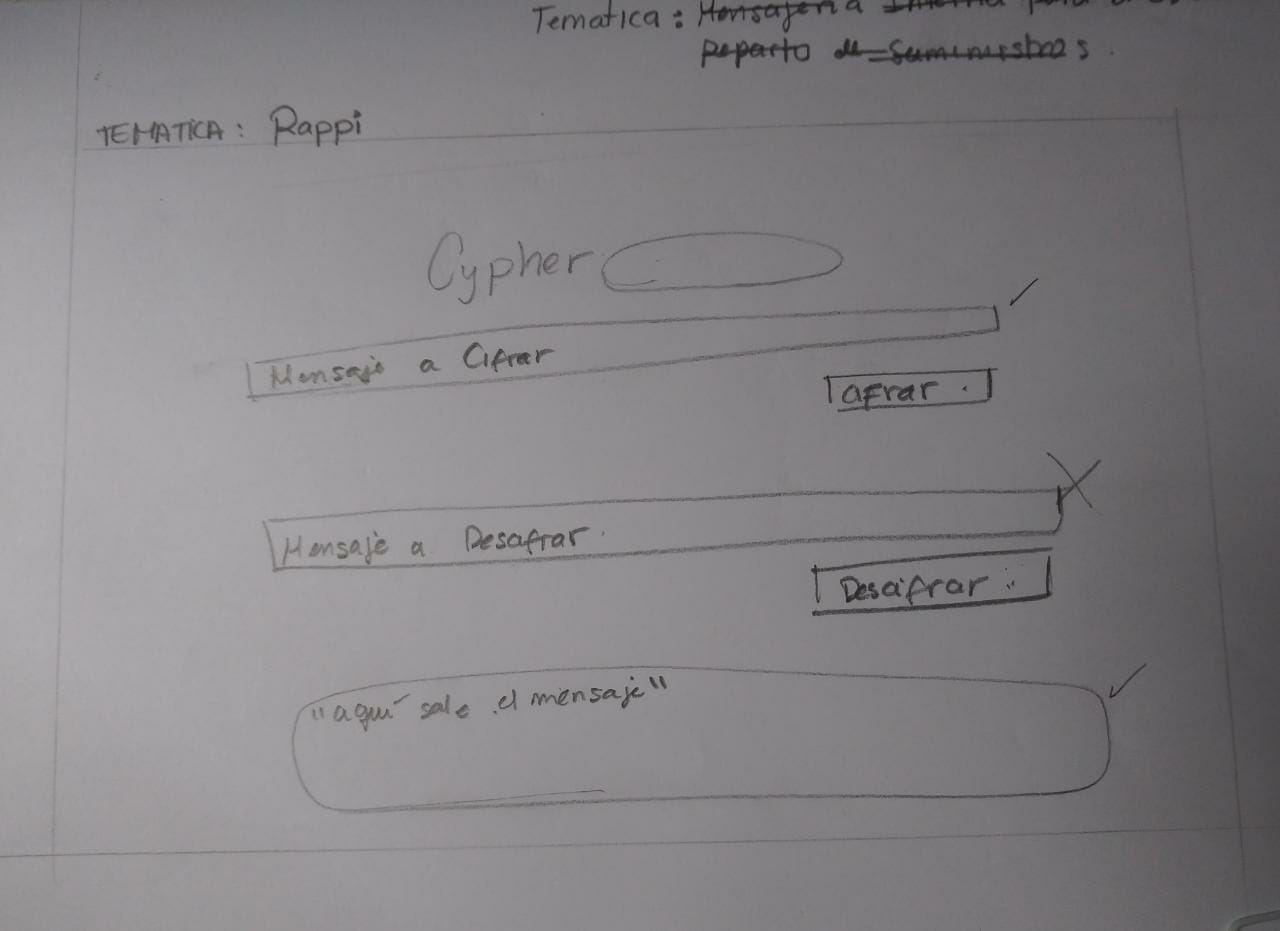 Tematica: Mensajeria Interna para
Reparto de Suministros.
TEMATICA: Rappi
Cypher
Mensaje a Cifrar
Cifrar.
Mensaje a Descifrar.
Descifrar.
"aquí sale el mensaje"